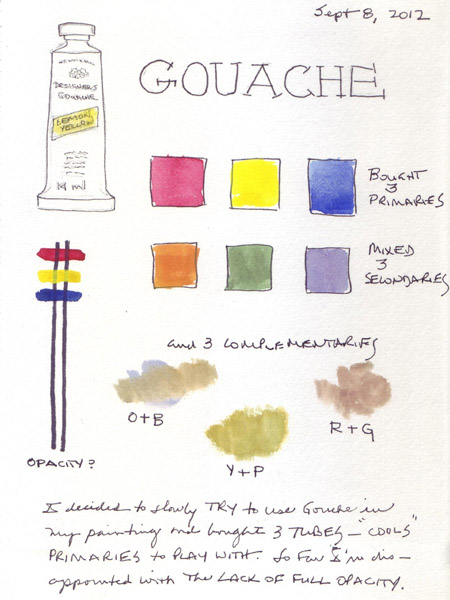 Sept 8, 2012
GOUACHE
DESIGNERS
GOUACHE
LEMON
YELLOW
BOUGHT
3
PRIMARIES
MIXED
3
SECONDARIES
and 3 COMPLEMENTARIES
O+B
Y+P
R+G
OPACITY?
I decided to slowly TRY to use Gouche in
my painting and bought 3 TUBES — "COOLS"
PRIMARIES TO PLAY WITH. So Far I'm dis-
appointed with THE LACK OF FULL OPACITY.